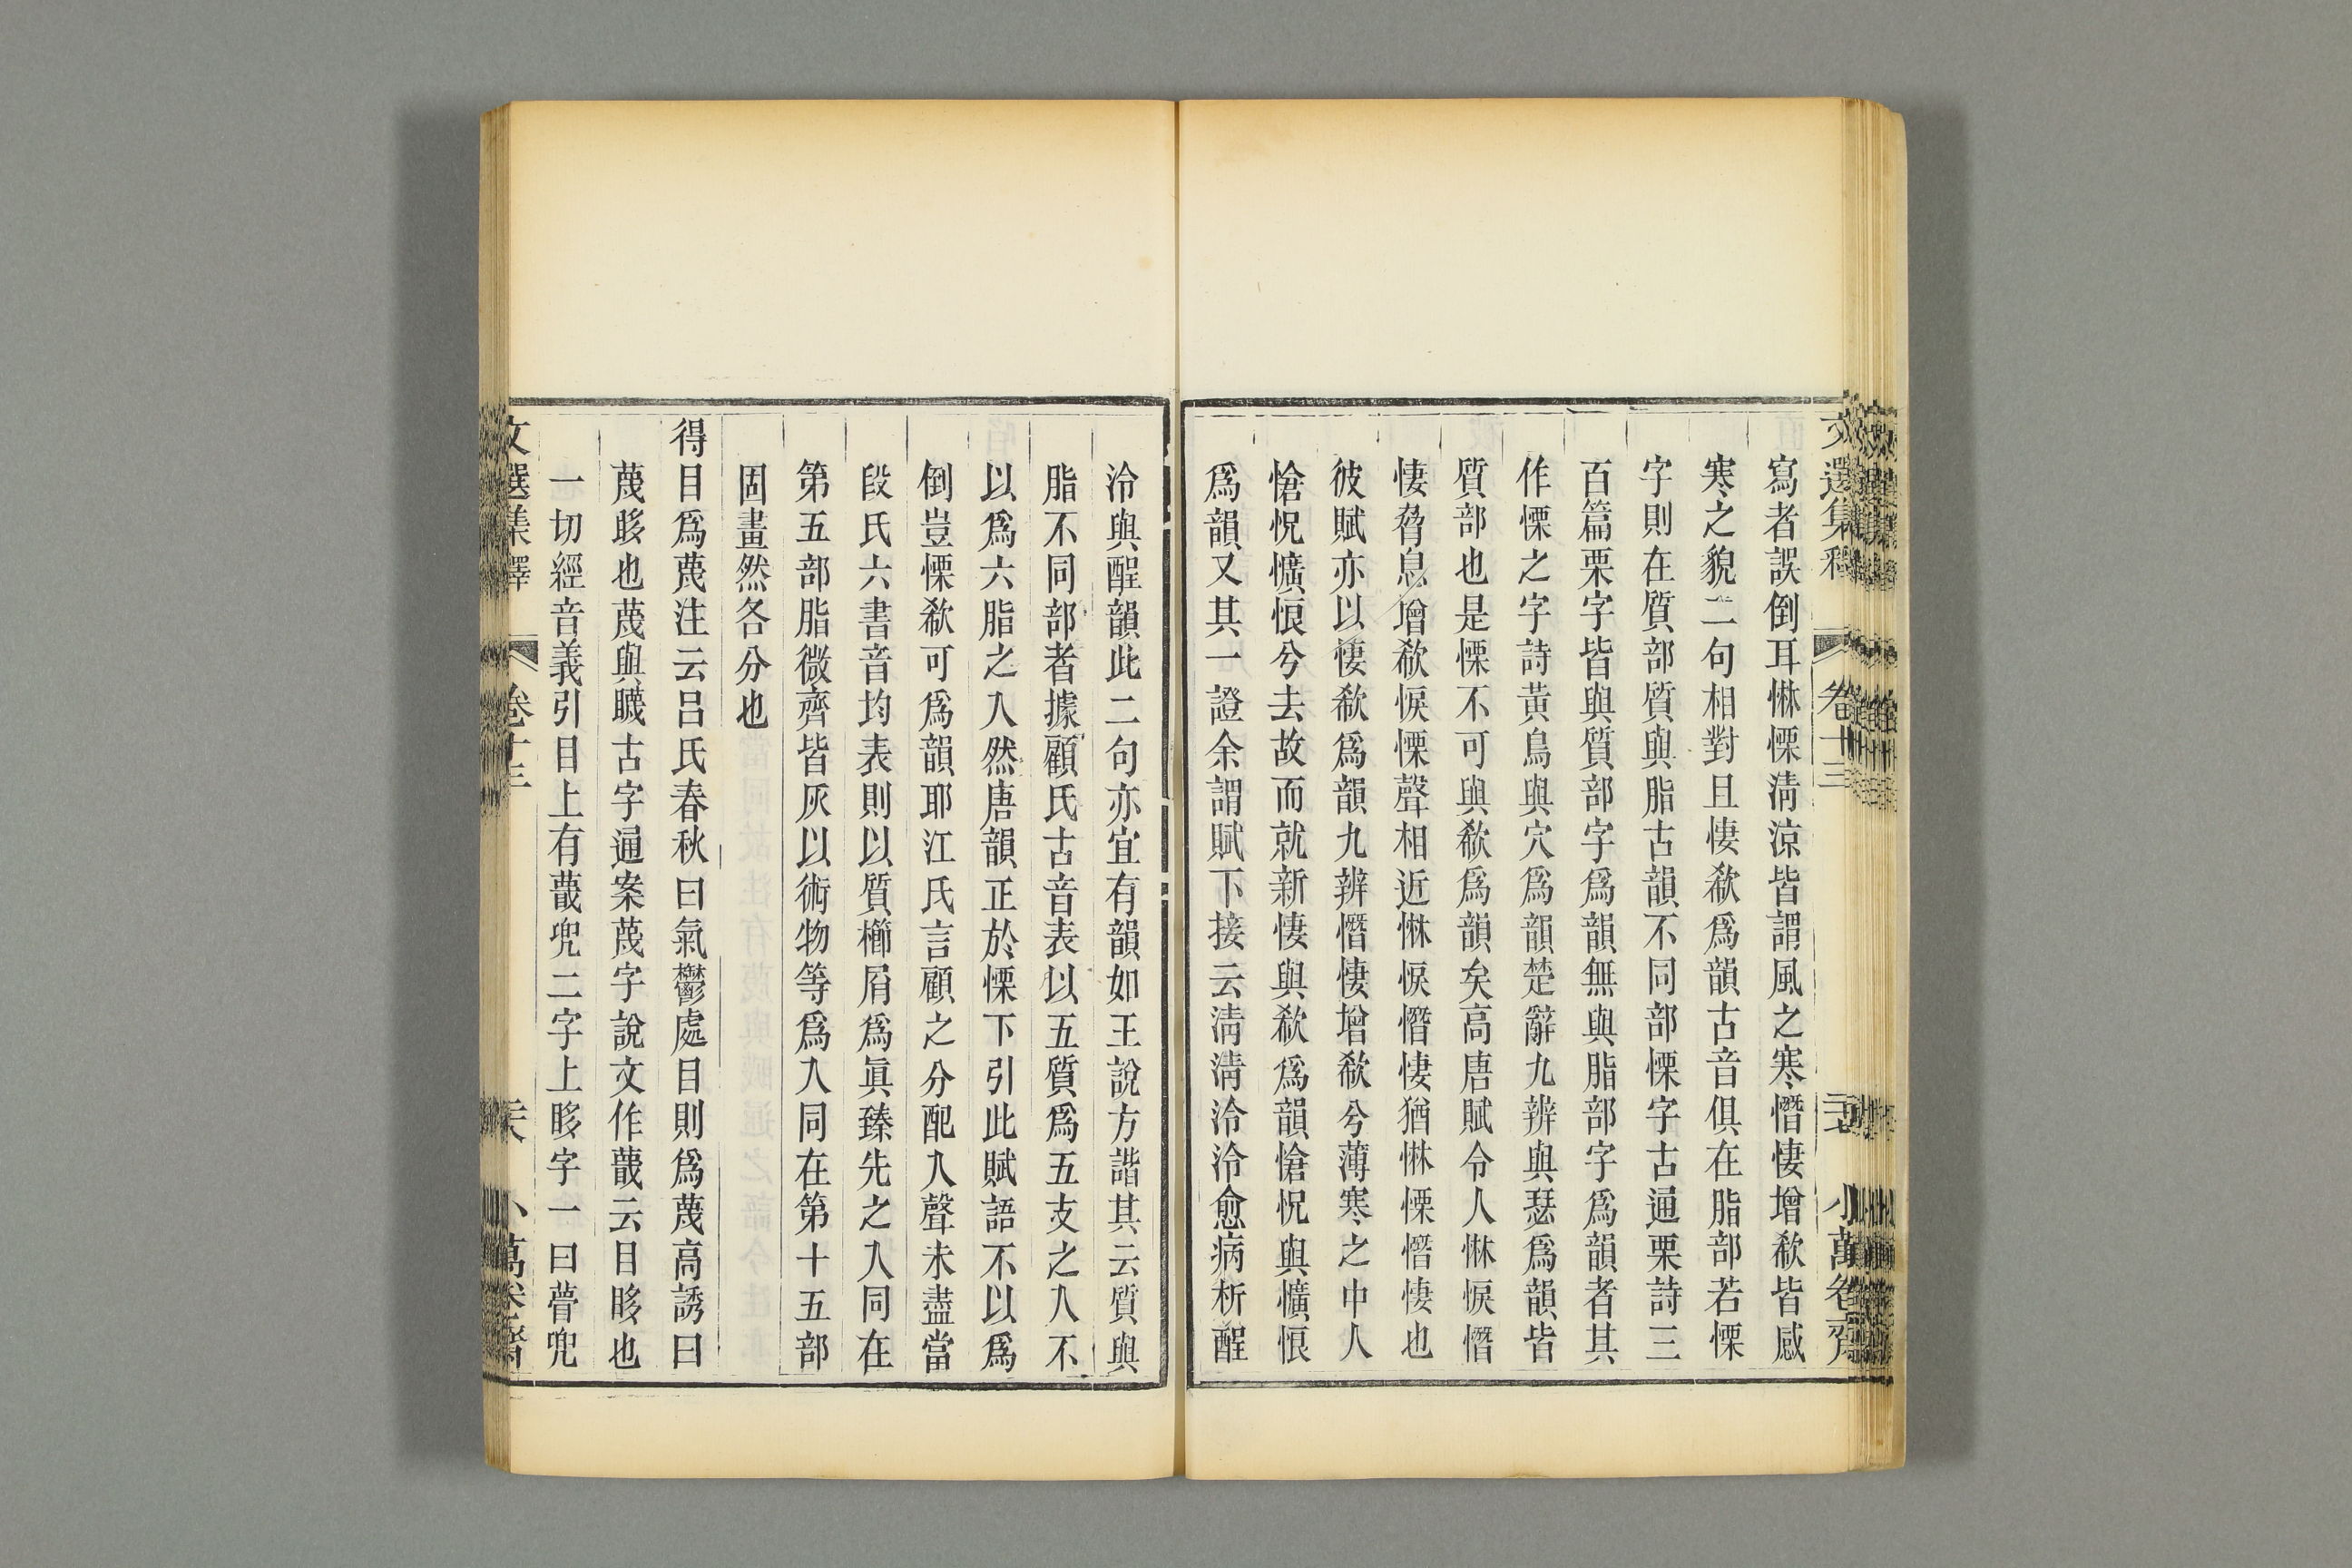 文選集釋 卷十三 小萬卷齋
寫者誤倒耳惏慄淸涼皆謂風之寒憯悽增欷皆感
寒之貌二句相對且悽欷爲韻古音俱在脂部若慄
字則在質部質與脂古韻不同部慄字古通栗詩三
百篇栗字皆與質部字爲韻無與脂部字爲韻者其
作慄之字詩黃鳥與穴爲韻楚辭九辨與瑟爲韻皆
質部也是慄不可與欷爲韻矣高唐賦令人惏悷憯
悽脅息增欷悷慄聲相近惏悷憯悽猶惏慄憯悽也
彼賦亦以悽欷爲韻九辨憯悽增欷兮薄寒之中人
愴怳懭悢兮去故而就新悽與欷爲韻愴怳與懭悢
爲韻又其一證余謂賦下接云淸淸泠泠愈病析酲
泠與酲韻此二句亦宜有韻如王說方諧其云質與
脂不同部者據顧氏古音表以五質爲五支之入不
以爲六脂之入然唐韻正於慄下引此賦語不以爲
倒豈慄欷可爲韻耶江氏言顧之分配入聲未盡當
段氏六書音均表則以質櫛屑爲眞臻先之入同在
第五部脂微齊皆灰以術物等爲入同在第十五部
固畫然各分也
得目爲蔑注云呂氏春秋曰氣鬱處目則爲蔑高誘曰
蔑眵也蔑與䁾古字通案蔑字說文作䁾云目眵也
一切經音義引目上有䁾兜二字上眵字一曰瞢兜
文選集釋 卷十三 小萬卷齋